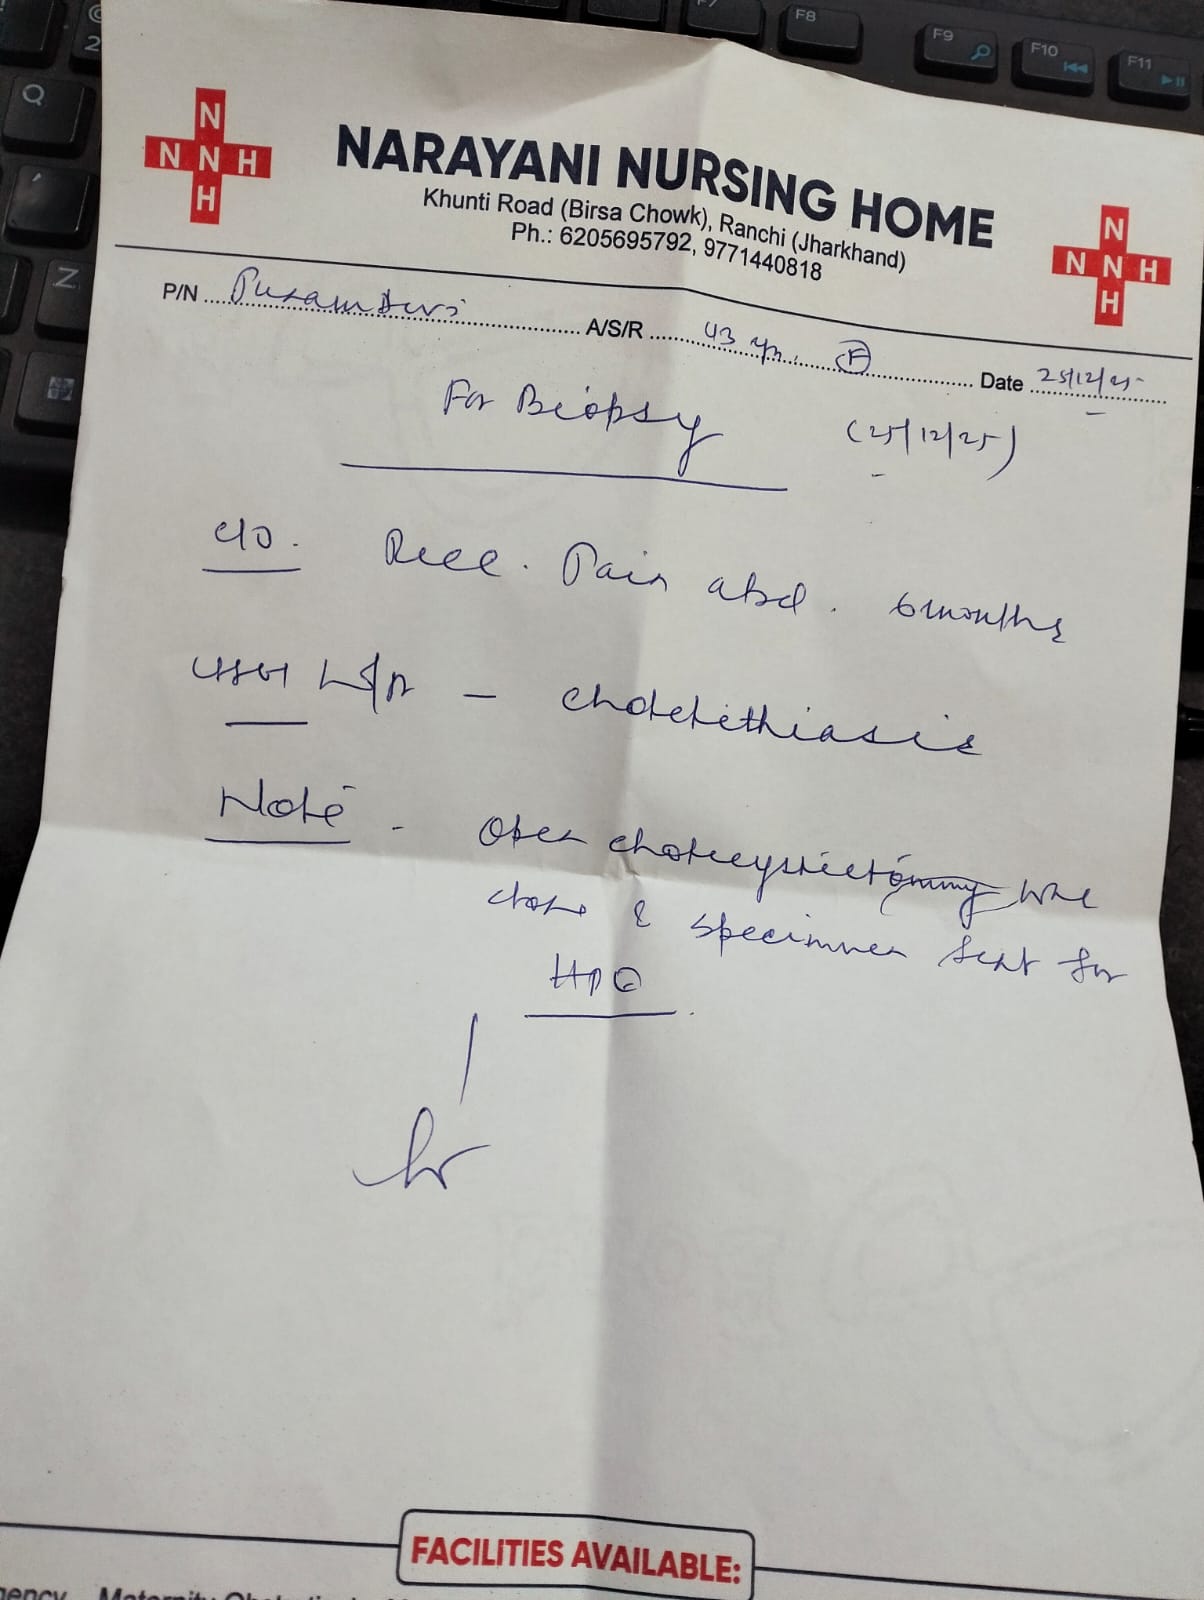 N
N N H
H
NARAYANI NURSING HOME
Khunti Road (Birsa Chowk), Ranchi (Jharkhand)
Ph.: 6205695792, 9771440818
N
N N H
H
P/N ..... A/S/R ..... 43 yr. F ..... Date 25/12/25
For Biopsy (25/12/25)
c/o. Rec. Pain abd. 6 months
- cholelithiasis
Note - Open cholecystectomy was
done & specimen sent for
HPE
FACILITIES AVAILABLE: